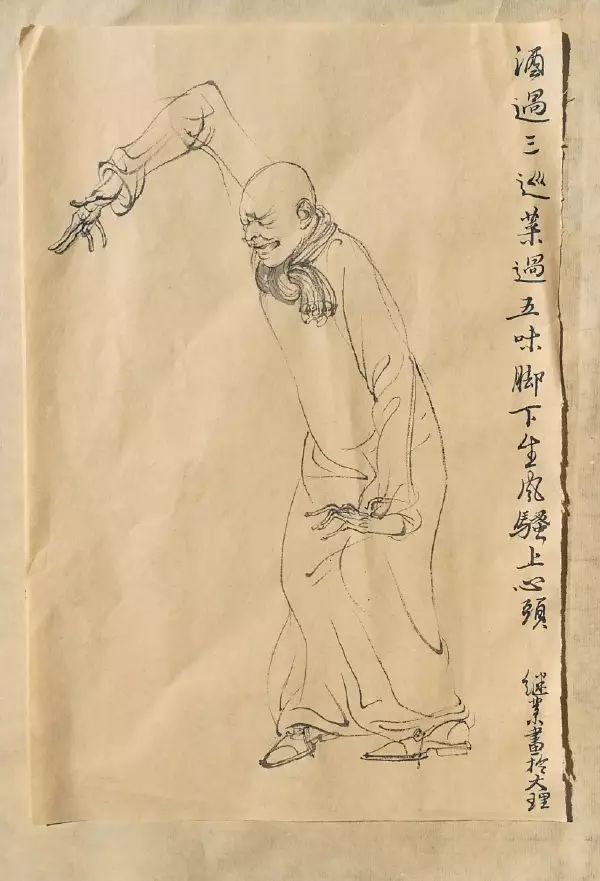 酒過三巡菜過五味脚下生風騷上心頭
继業畫於大理